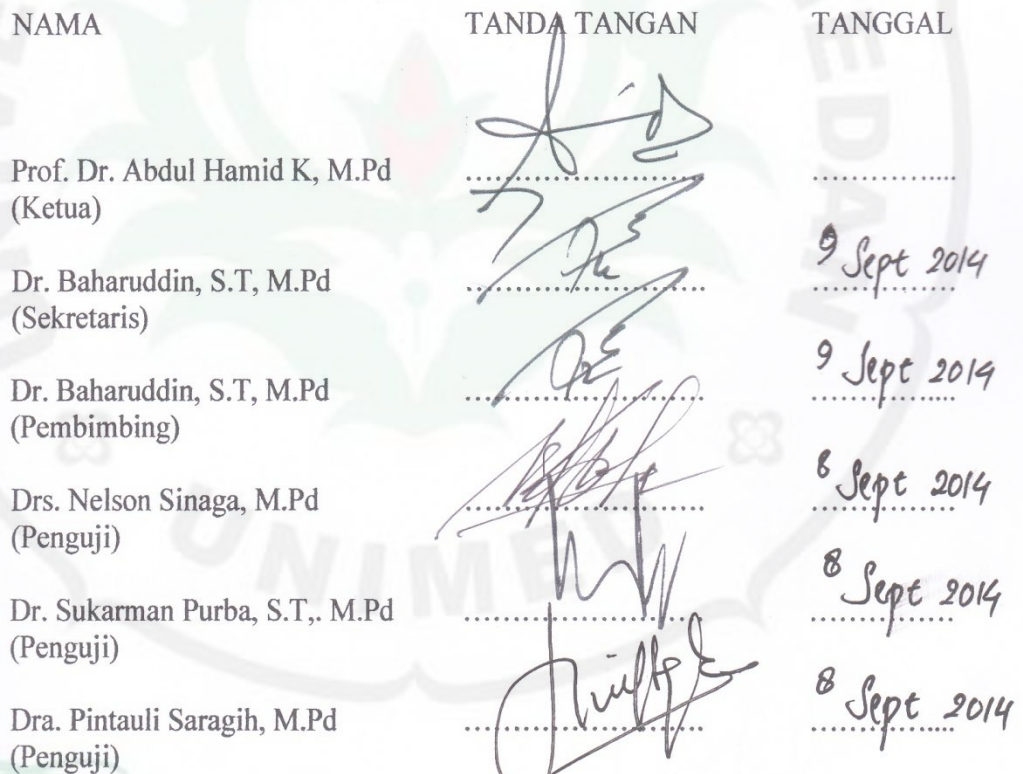 NAMA TANDA TANGAN TANGGAL
Prof. Dr. Abdul Hamid K, M.Pd ........................ ..............
(Ketua)
9 Sept 2014
Dr. Baharuddin, S.T, M.Pd ........................ ..............
(Sekretaris)
9 Sept 2014
Dr. Baharuddin, S.T, M.Pd ........................ ..............
(Pembimbing)
8 Sept 2014
Drs. Nelson Sinaga, M.Pd ........................ ..............
(Penguji)
8 Sept 2014
Dr. Sukarman Purba, S.T,. M.Pd ........................ ..............
(Penguji)
8 Sept 2014
Dra. Pintauli Saragih, M.Pd ........................ ..............
(Penguji)
UNIMED